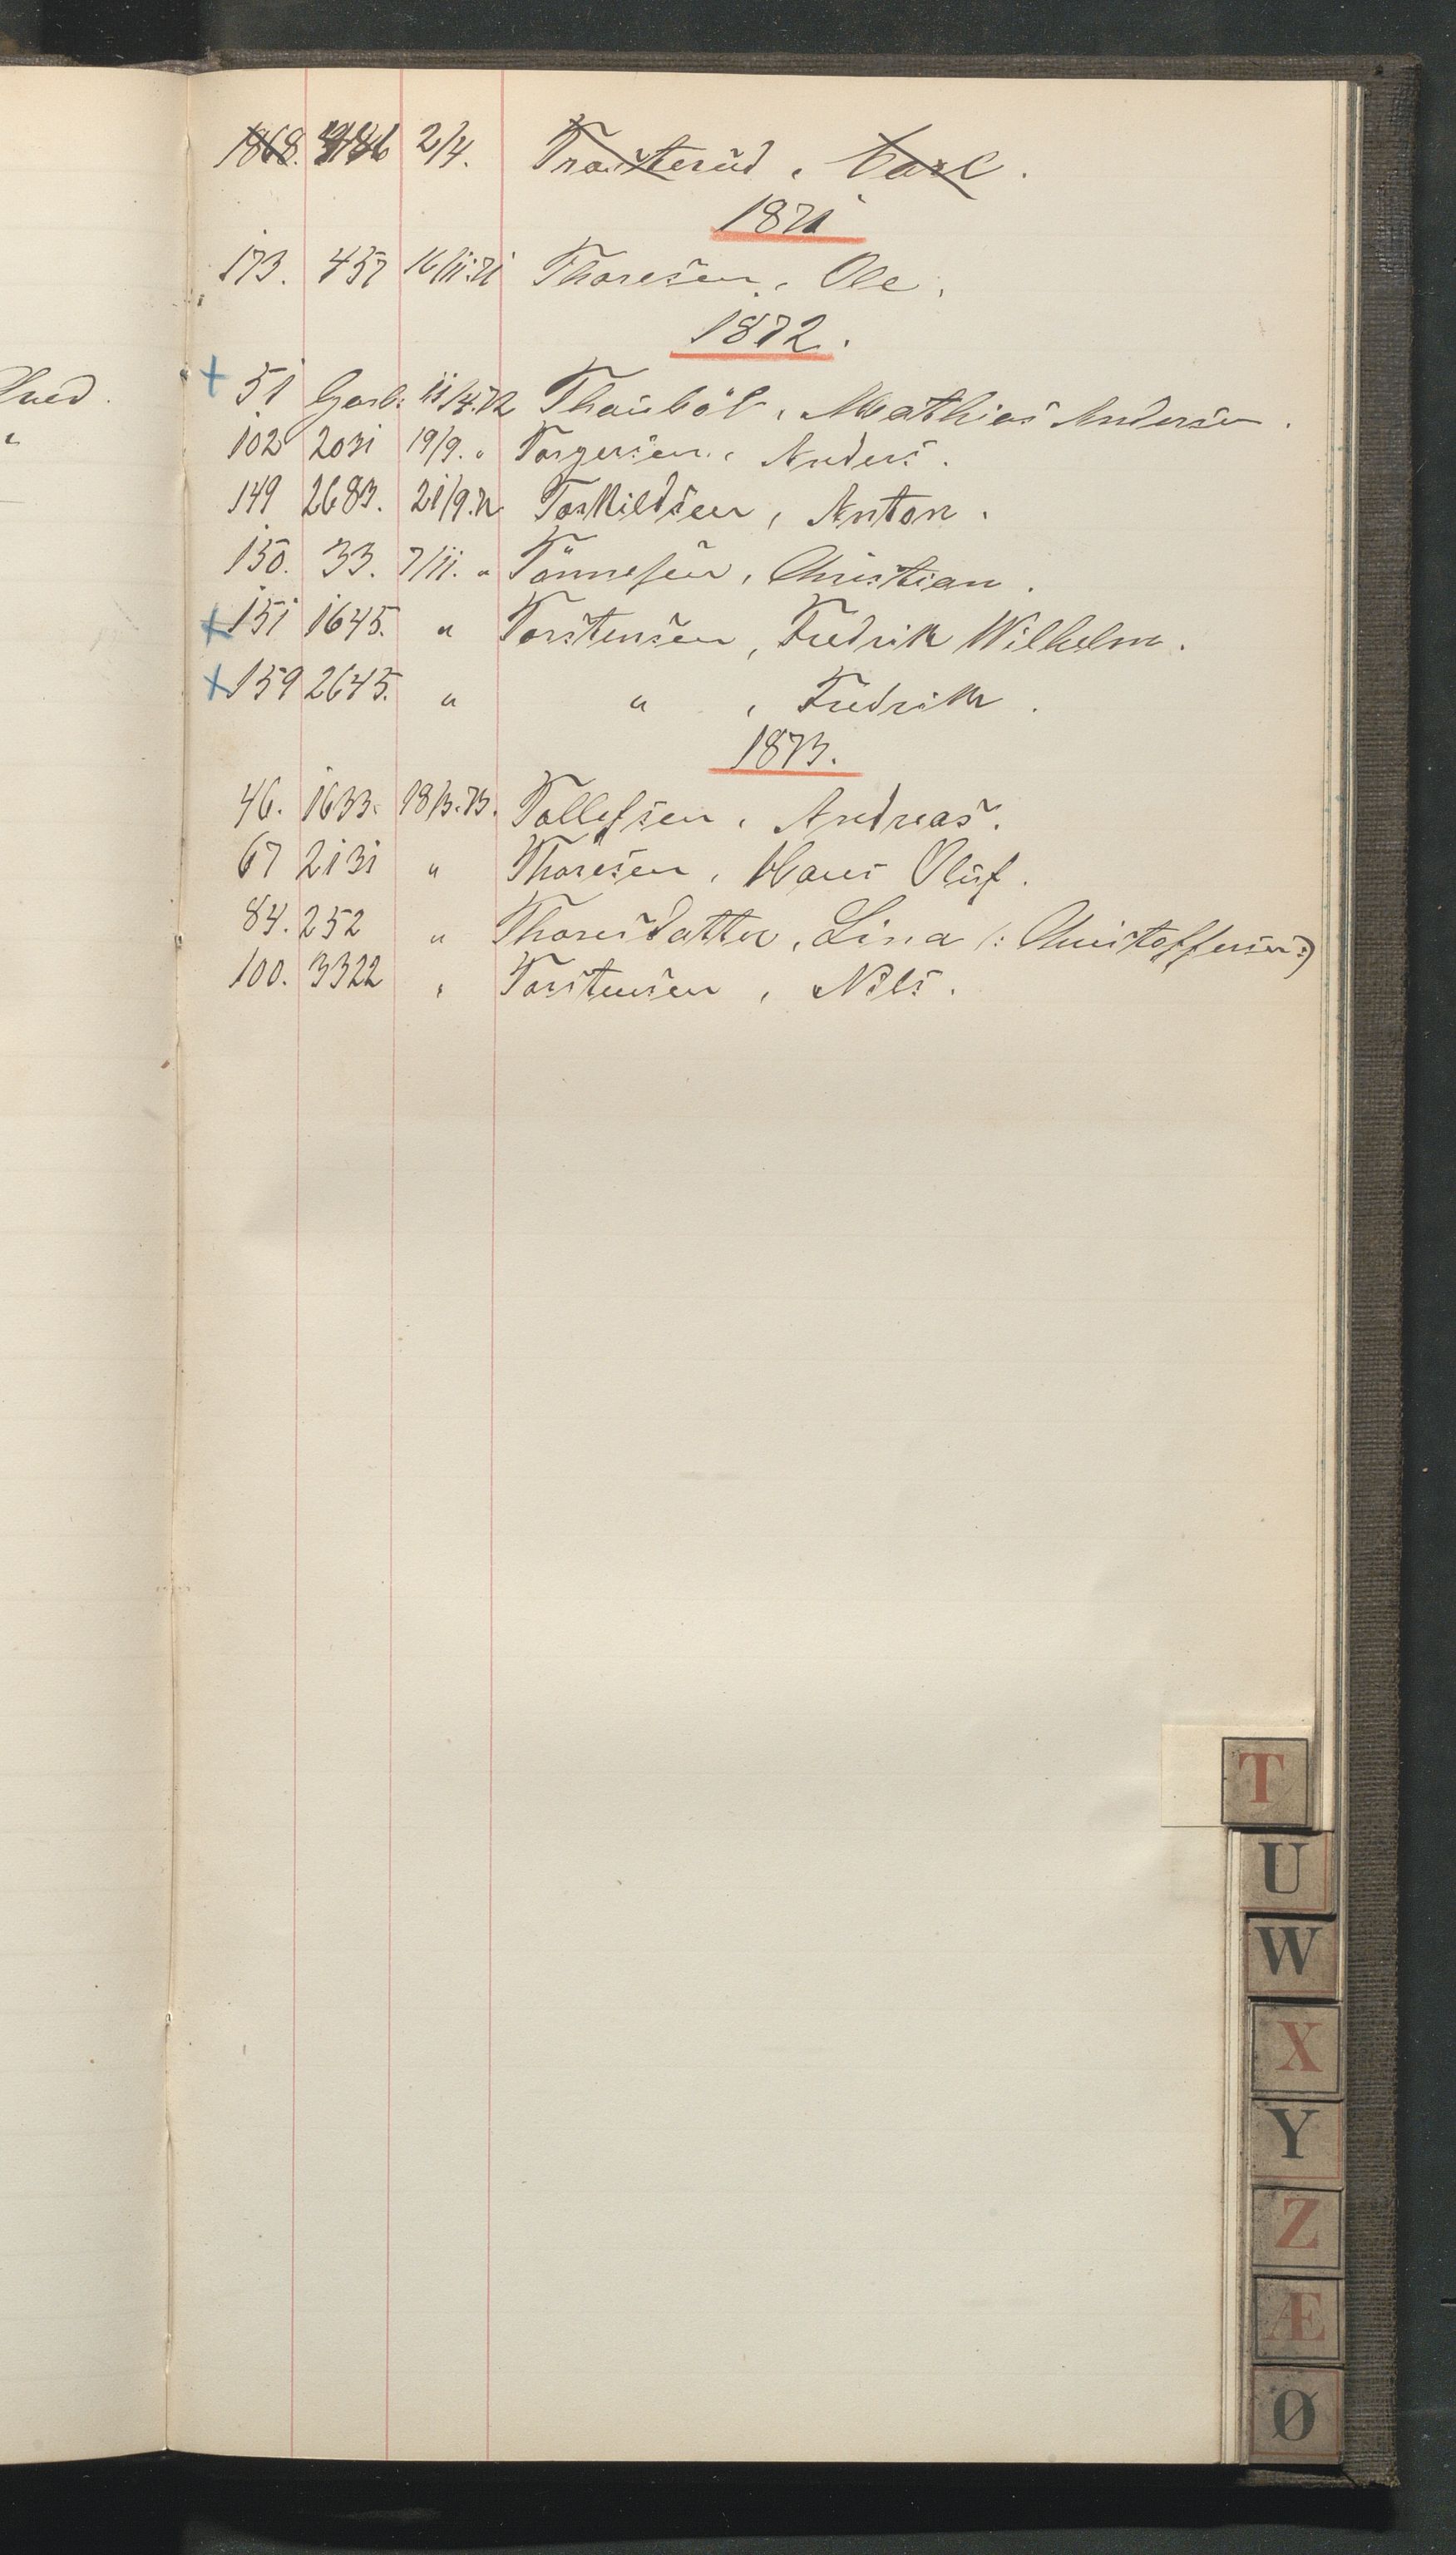 1868. 2/4. Trosterud, Carl.
1871
173. 457 16/11.71 Thoresen, Ole.
1872.
+ 51 Garb: 11/4.72 Mathias Andersen.
102 2031 19/9. " Torgersen, Anders.
149 2683. 21/9.72 Torkildsen, Anton.
150. 33. 7/11. " Tönnesen, Christian.
+ 151 1645. " Torstensen, Fredrik Wilhelm.
+ 159 2645. " " , Fredrik.
1873.
46. 1633. 18/3.73. Tollefsen, Andreas.
67 2131 " Thoresen, Hans Oluf.
84. 252 " Thoresdatter, Lina (: Christoffersen :)
100. 3322 " Torstensen, Nils.
T
U
W
X
Y
Z
Æ
Ø